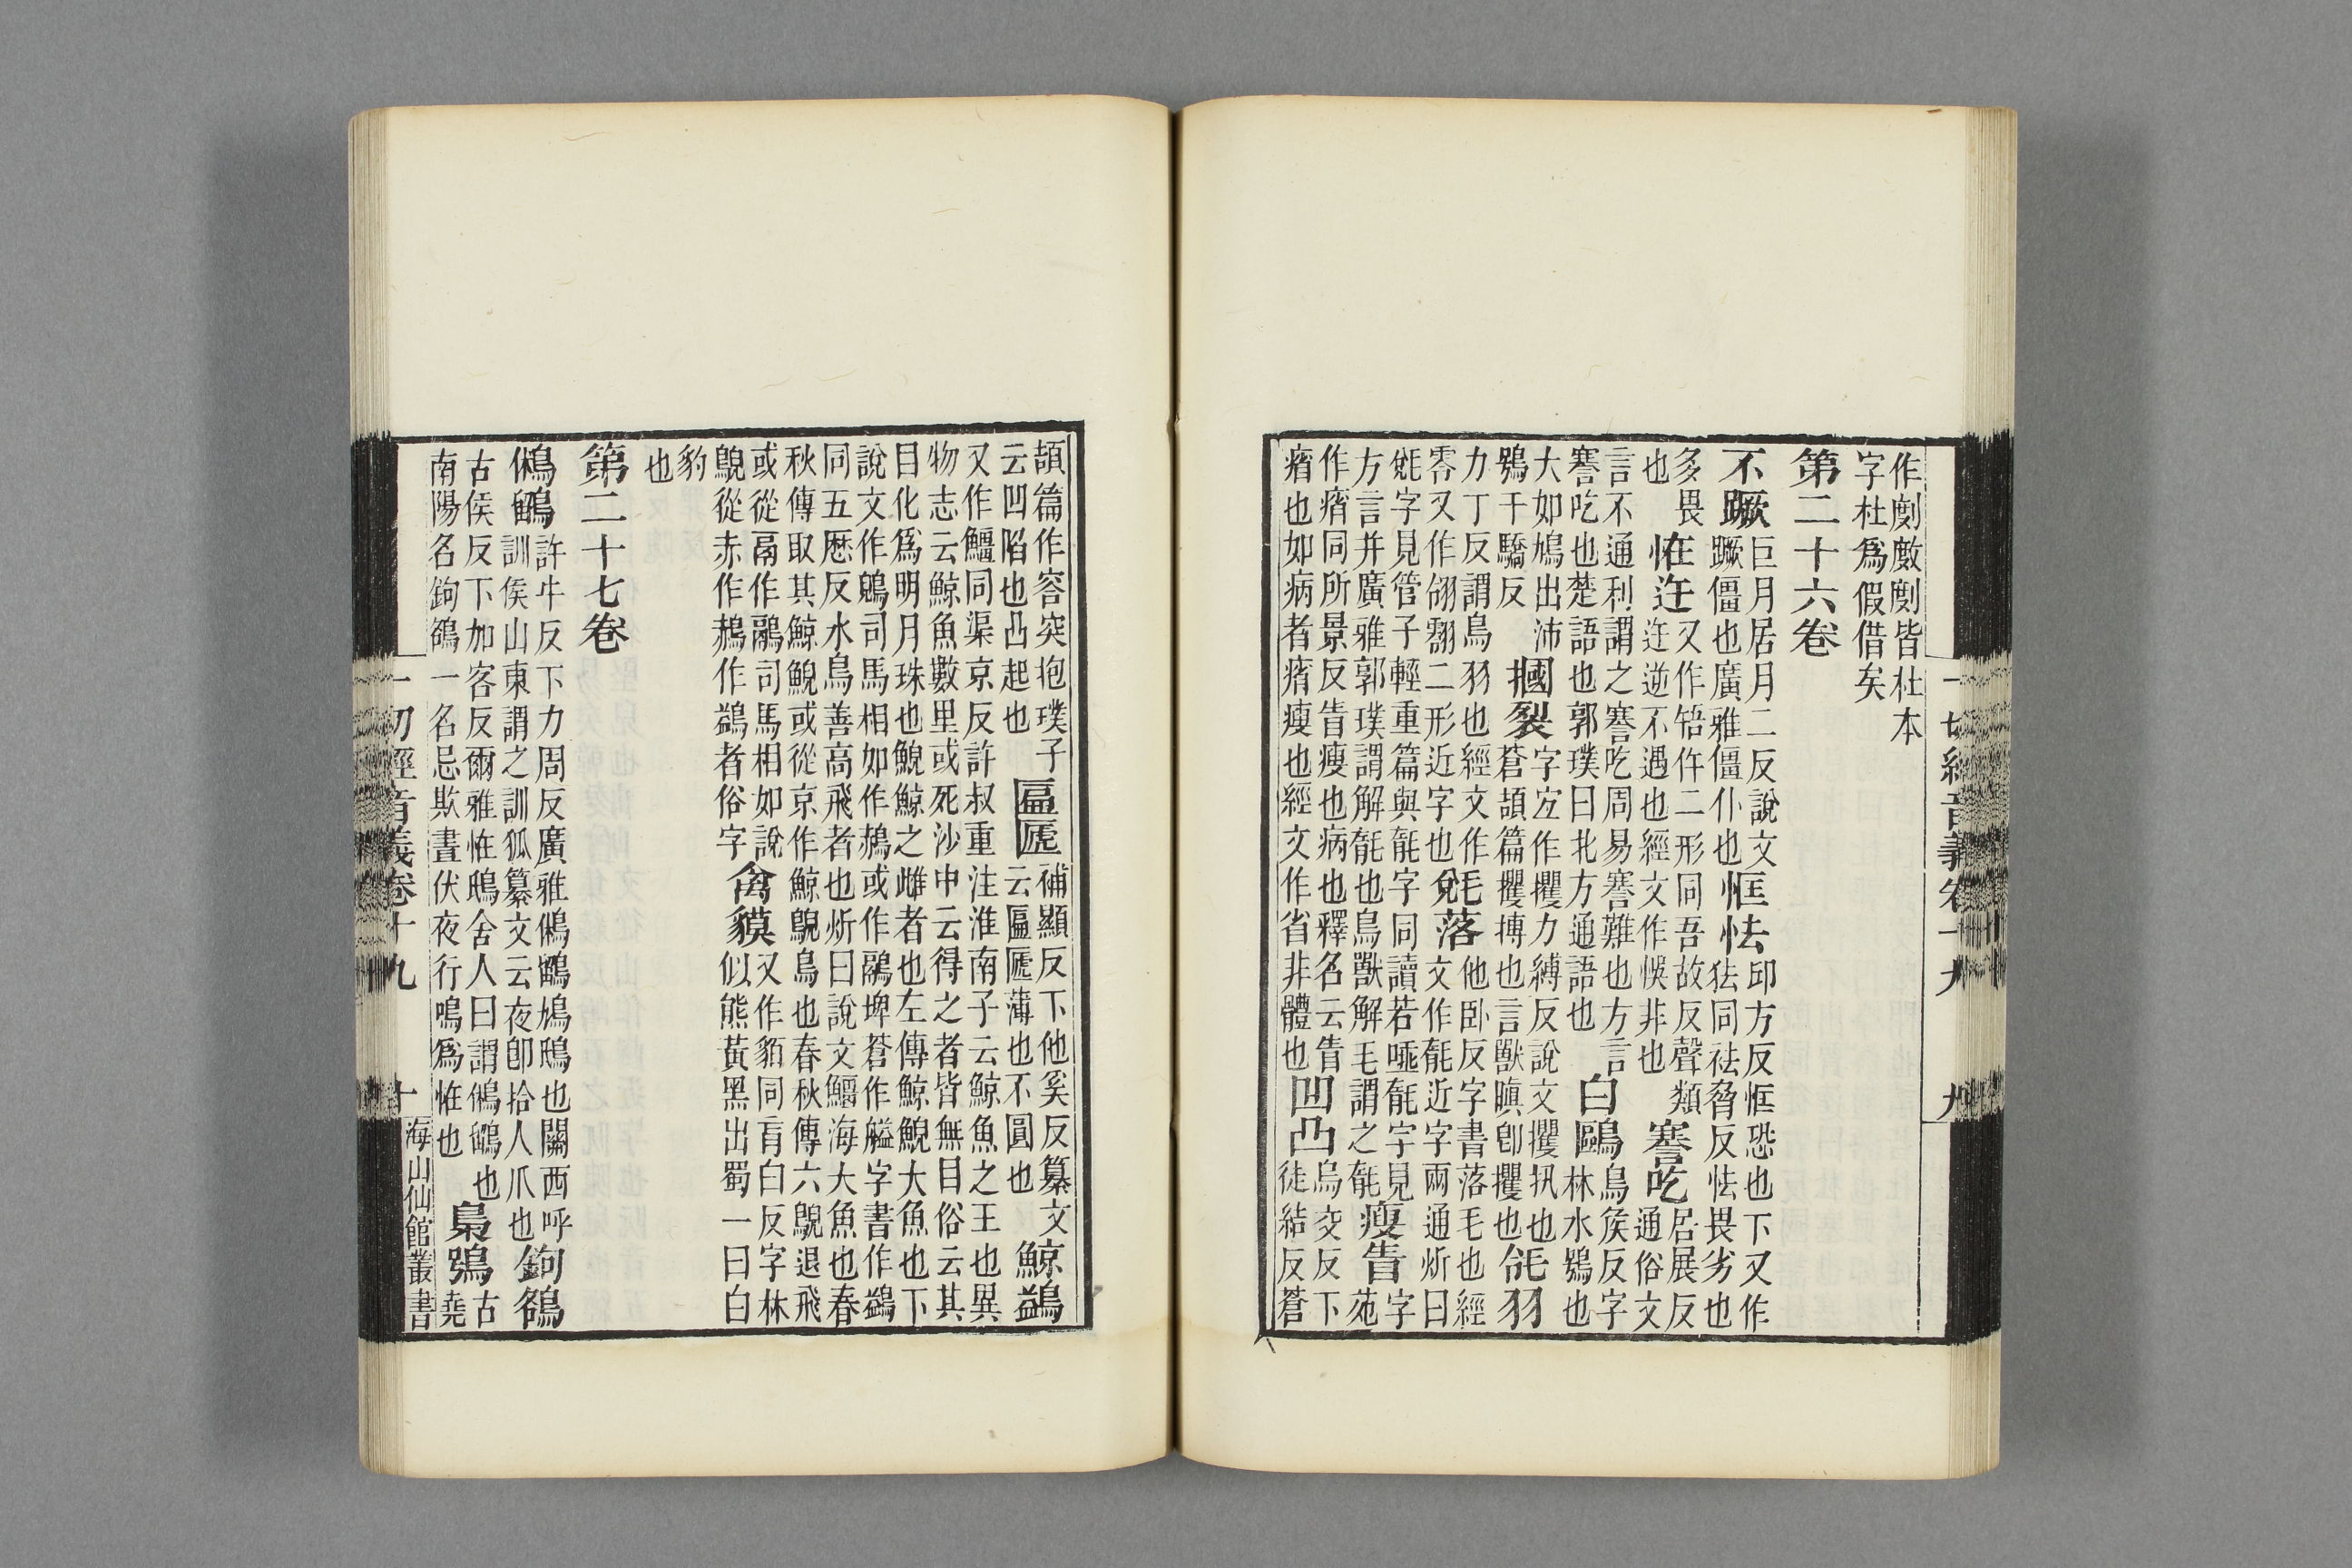 作㓻㪇㓻皆杜本
字杜爲假借矣
第二十六卷
不蹶巨月居月二反說文
蹶僵也廣雅僵仆也恇怯邱方反恇恐也下又作
㹤同祛脅反怯畏劣也
多畏
也㤮迕又作㖧仵二形同吾故反聲類
迕逆不遇也經文作悞非也謇吃居展反
通俗文
言不通利謂之謇吃周易謇難也方言
謇吃也楚語也郭璞曰北方通語也白鷗烏侯反字
林水鴞也
大如鳩出沛
鴞干驕反摑裂字宜作攫力縛反說文攫扟也
蒼頡篇攫搏也言獸瞋卽攫也毤羽
力丁反謂鳥羽也經文作毛
零又作翎䎕二形近字也毻落他臥反字書落毛也經
文作毻近字兩通炘曰
毤字見管子輕重篇與毻字同讀若唾毻字見字
方言并廣雅郭璞謂解毻也鳥獸解毛謂之毻苑瘦眚
作㾪同所景反眚瘦也病也釋名云眚
㾪也如病者㾪瘦也經文作省非體也凹凸烏交反下
徒結反蒼
頡篇作容突抱璞子
云凹陷也凸起也匾㔸補顯反下他奚反纂文
云匾㔸薄也不圓也鯨鷁
又作鱷同渠京反許叔重注淮南子云鯨魚之王也異
物志云鯨魚數里或死沙中云得之者皆無目俗云其
目化爲明月珠也鯢鯨之雌者也左傳鯨鯢大魚也下
說文作鶂司馬相如作鷊或作鶃埤蒼作艗字書作鷁
同五厯反水鳥善高飛者也炘曰說文鱷海大魚也春
秋傳取其鯨鯢或從京作鯨鶂鳥也春秋傳六鶂退飛
或從鬲作鷊司馬相如說
鶂從赤作鷊作鷁者俗字禽貘又作貊同盲白反字林
似熊黃黑出蜀一曰白
豹
也
第二十七卷
鵂鶹許牛反下力周反廣雅鵂鶹鳩鴟也關西呼
訓侯山東謂之訓狐纂文云夜卽拾人爪也鉤鵅
古侯反下加客反爾雅怪鴟舍人曰謂鵂鶹也
南陽名鉤鵅一名忌欺晝伏夜行鳴爲怪也梟鴞古
堯
一切經音義卷十九 九
一切經音義卷十九 十 海山仙館叢書